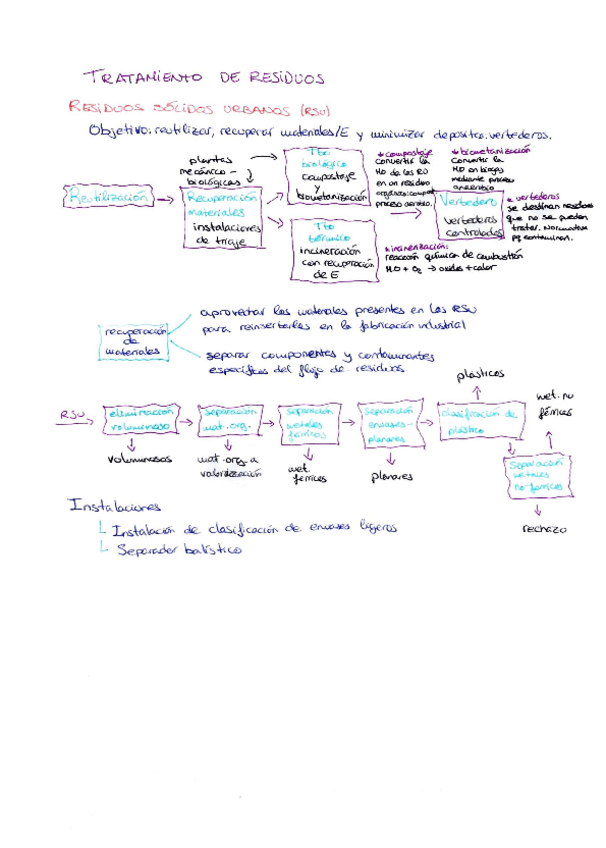 TRATAMIENTO DE RESIDUOS
RESIDUOS SÓLIDOS URBANOS (RSU)
Objetivo: reutilizar, recuperar materiales/E y minimizar depositos: vertederos.
Reutilización
plantas
mecánico-
biológicas
Recuperación
materiales
instalaciones
de triaje
Tto
biológico
compostaje
y
biometanización
Tto
térmico
incineración
con recuperación
de E
* compostaje
convertir la
MO de los RO
en un residuo
orgánico: compost
proceso aerobio.
* biometanización
Convertir la
MO en biogas
mediante proceso
anaerobio
Vertedero
vertederos
controlados
* vertederos
se destinan residuos
que no se pueden
tratar. Normadora
pq contaminan.
* incineración:
reacción química de combustión
M.O + O2 → oxidos + calor
recuperación
de
materiales
aprovechar los materiales presentes en los RSU
para reinsertarlos en la fabricación industrial
separar componentes y contaminantes
específicos del flujo de residuos
RSU
eliminación
voluminoso
voluminosos
separación
mat. org.
mat. org. a
valorización
separación
metales
férricos
met.
ferricos
separación
envases-
planares
planares
clasificación de
plástico
plásticos
separación
metales
no-ferricos
met. no
férricos
rechazo
Instalaciones
Instalación de clasificación de envases ligeros
Separador balístico